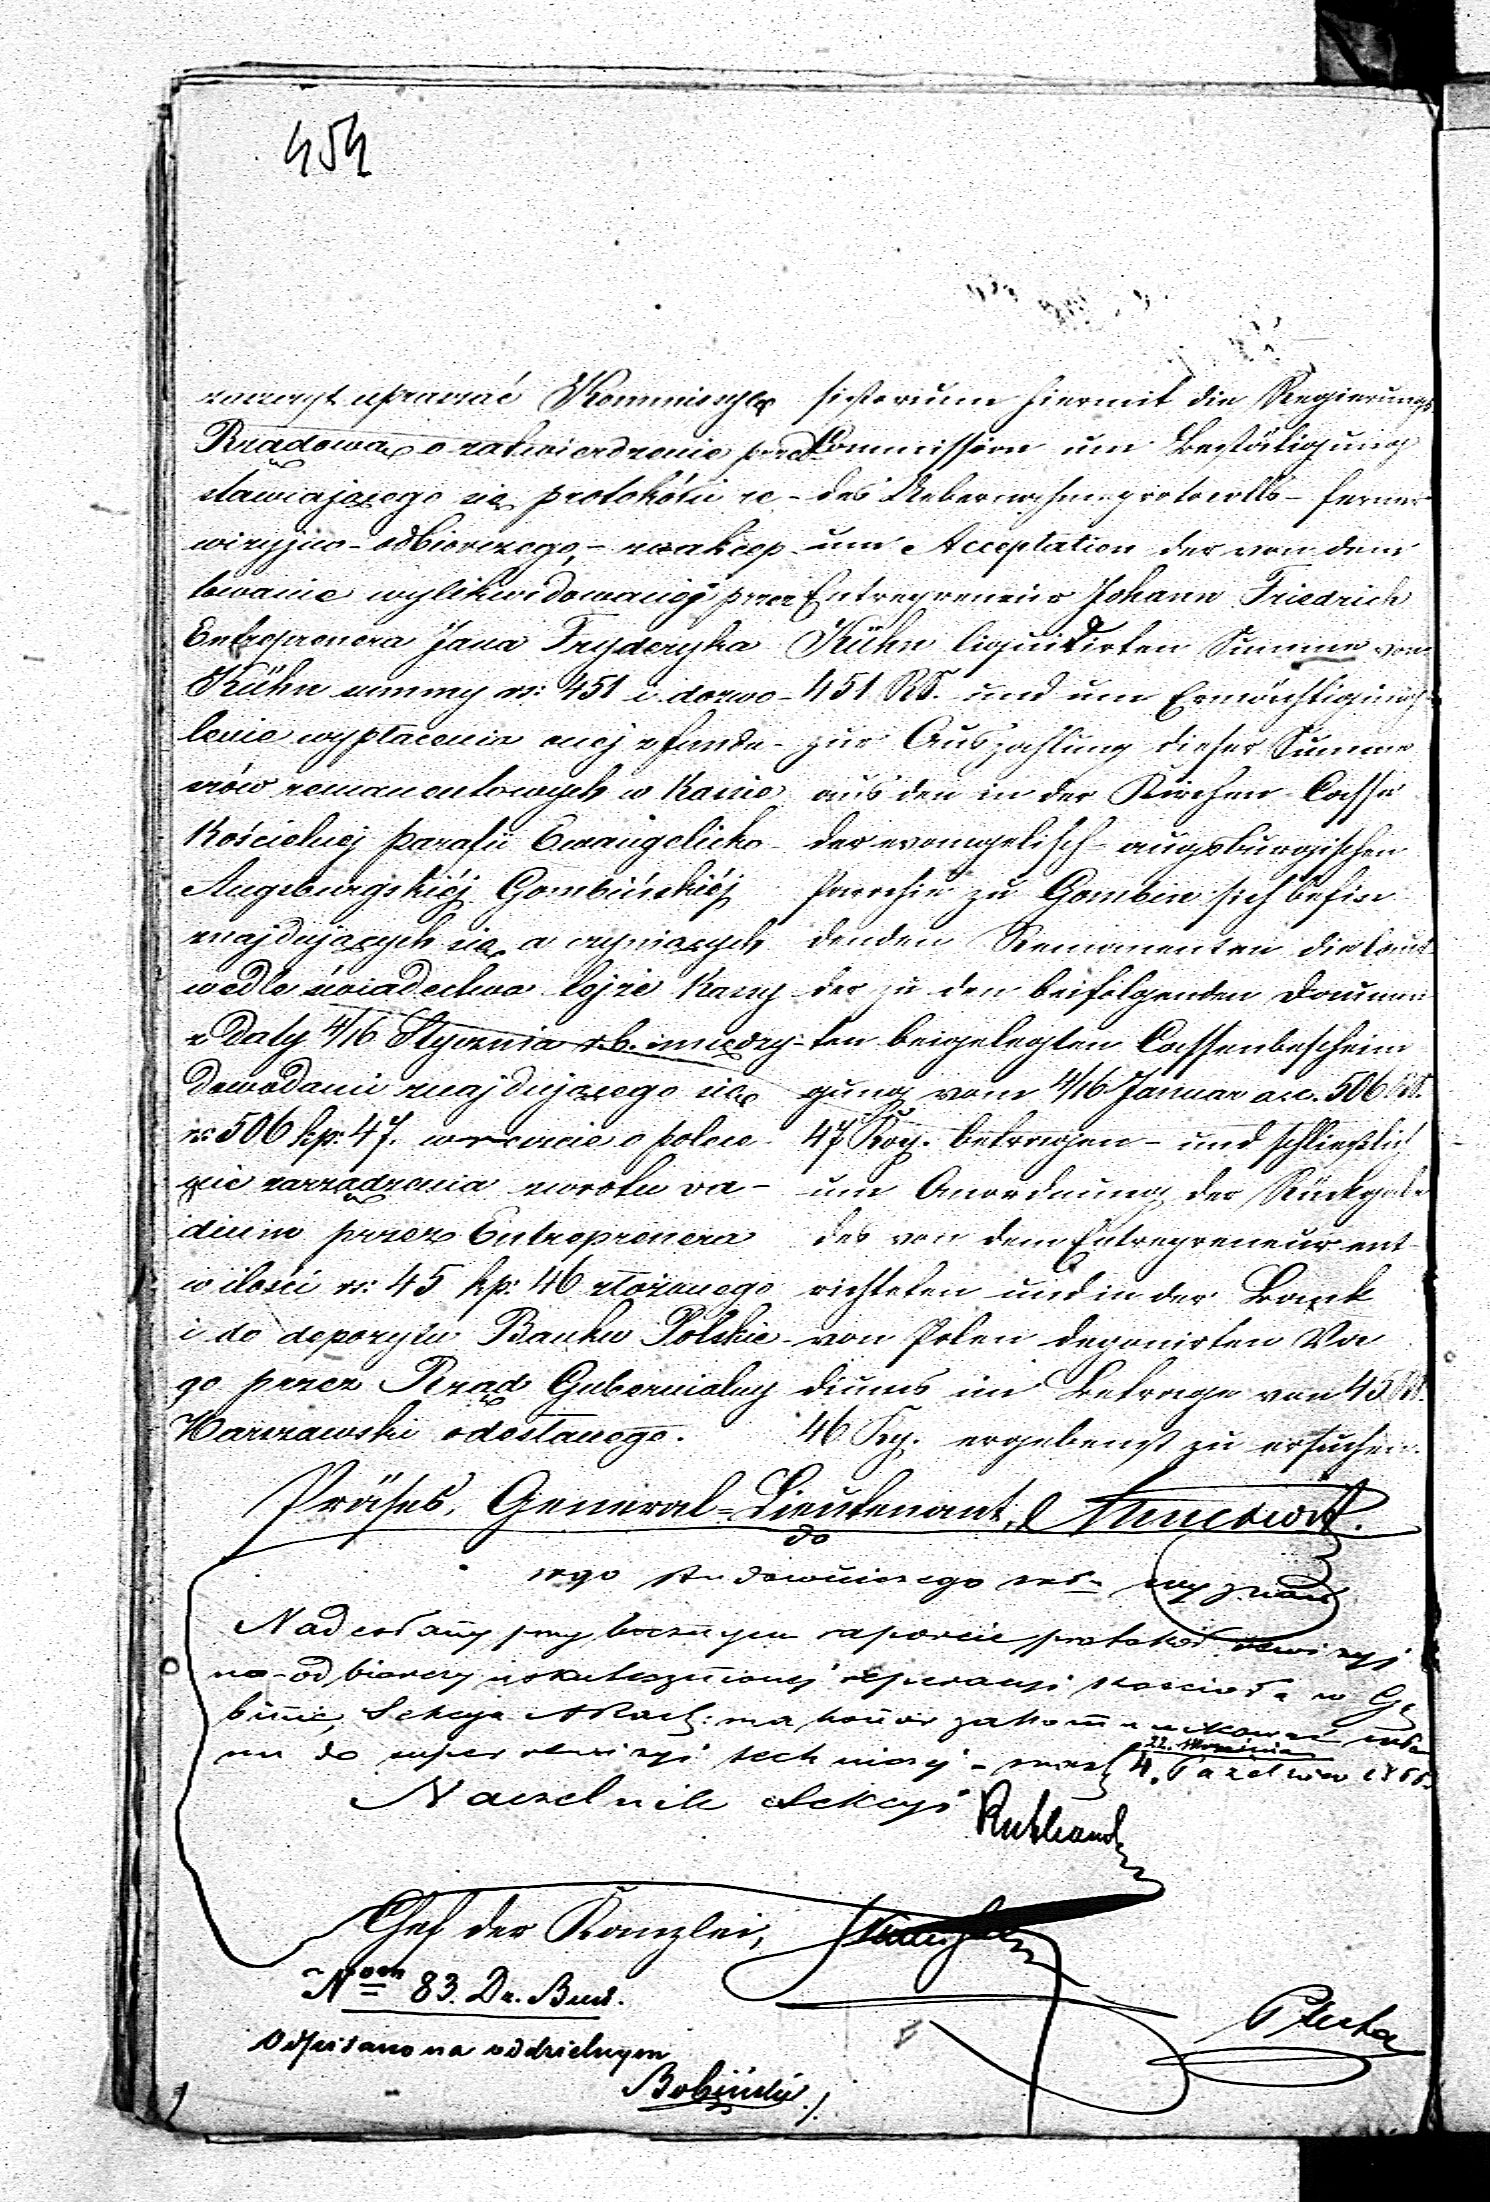 454
zaszczyt upraszać Kommissyę
Rządową o zatwierdzenie przed-
stawiającego się protokółu re-
wizyjno-odbiorczego, – zaakcep-
towanie wylikwidowanéj przez
Entreprenera Jana Fryderyka
Kühn summy rs: 451 i dozwo-
lenie wypłacenia onej z fundu-
szów remanentowych w Kassie
Kościelnéj parafii Ewangelicko-
Augsburgskiéj Gombińskiéj
znajdujących się a czyniących
wedle świadectwa tejże Kassy
z daty 4/16 Stycznia r. b. między
dowodami znajdującego się
rs 506 kp: 47. wreszcie o polece-
nie zarządzenia zwrotu va-
dium przez Entreprenera
w ilości rs: 45 kp: 46 złożonego
i do depozytu Banku Polskie-
go przez Rząd Gubernialny
Warszawski odesłanego.
sistorium hiermit die Regierungs
Commission um Bestätigung
des Uebernahmeprotocolls – ferner
um Acceptation der von dem
Entrepreneur Johann Friedrich
Kühn liquidirten Summe von
451 RS. und um Ermächtigung
zur Auszahlung dieser Summe
aus den in der Kirchen Casse
der evangelisch-augsburgischen
Parochie zu Gombin sich befin
denden Remanenten die laut
der zu den beifolgenden Documen
ten beigelegten Cassenbeschein
gung vom 4/16 Januar a. c. 506 RS.
47 Kop. betragen – und schließlich
um Anordnung der Rückgabe
des von dem Entrepreneur ent
richteten und in der Bank
von Polen deponirten Va
diums im Betrage von 45 RS.
46 Kop. ergebenst zu ersuchen.
Präses, General-Lieutenant,
do
Nadesłany przy bocznym raporcie protokół rewizyj
no-odbiorczy uskutecznionej reperacyi kościoła w Gą
binie, Sekcya ma honor zakommunikować
do superrewizyi technicznej –
22. Września
4. Październ
Naczelnik Sekcyi
Chef der Kanzlei,
N 83. Dr. Bud.
Odpisano na oddzielnym
Bobiński